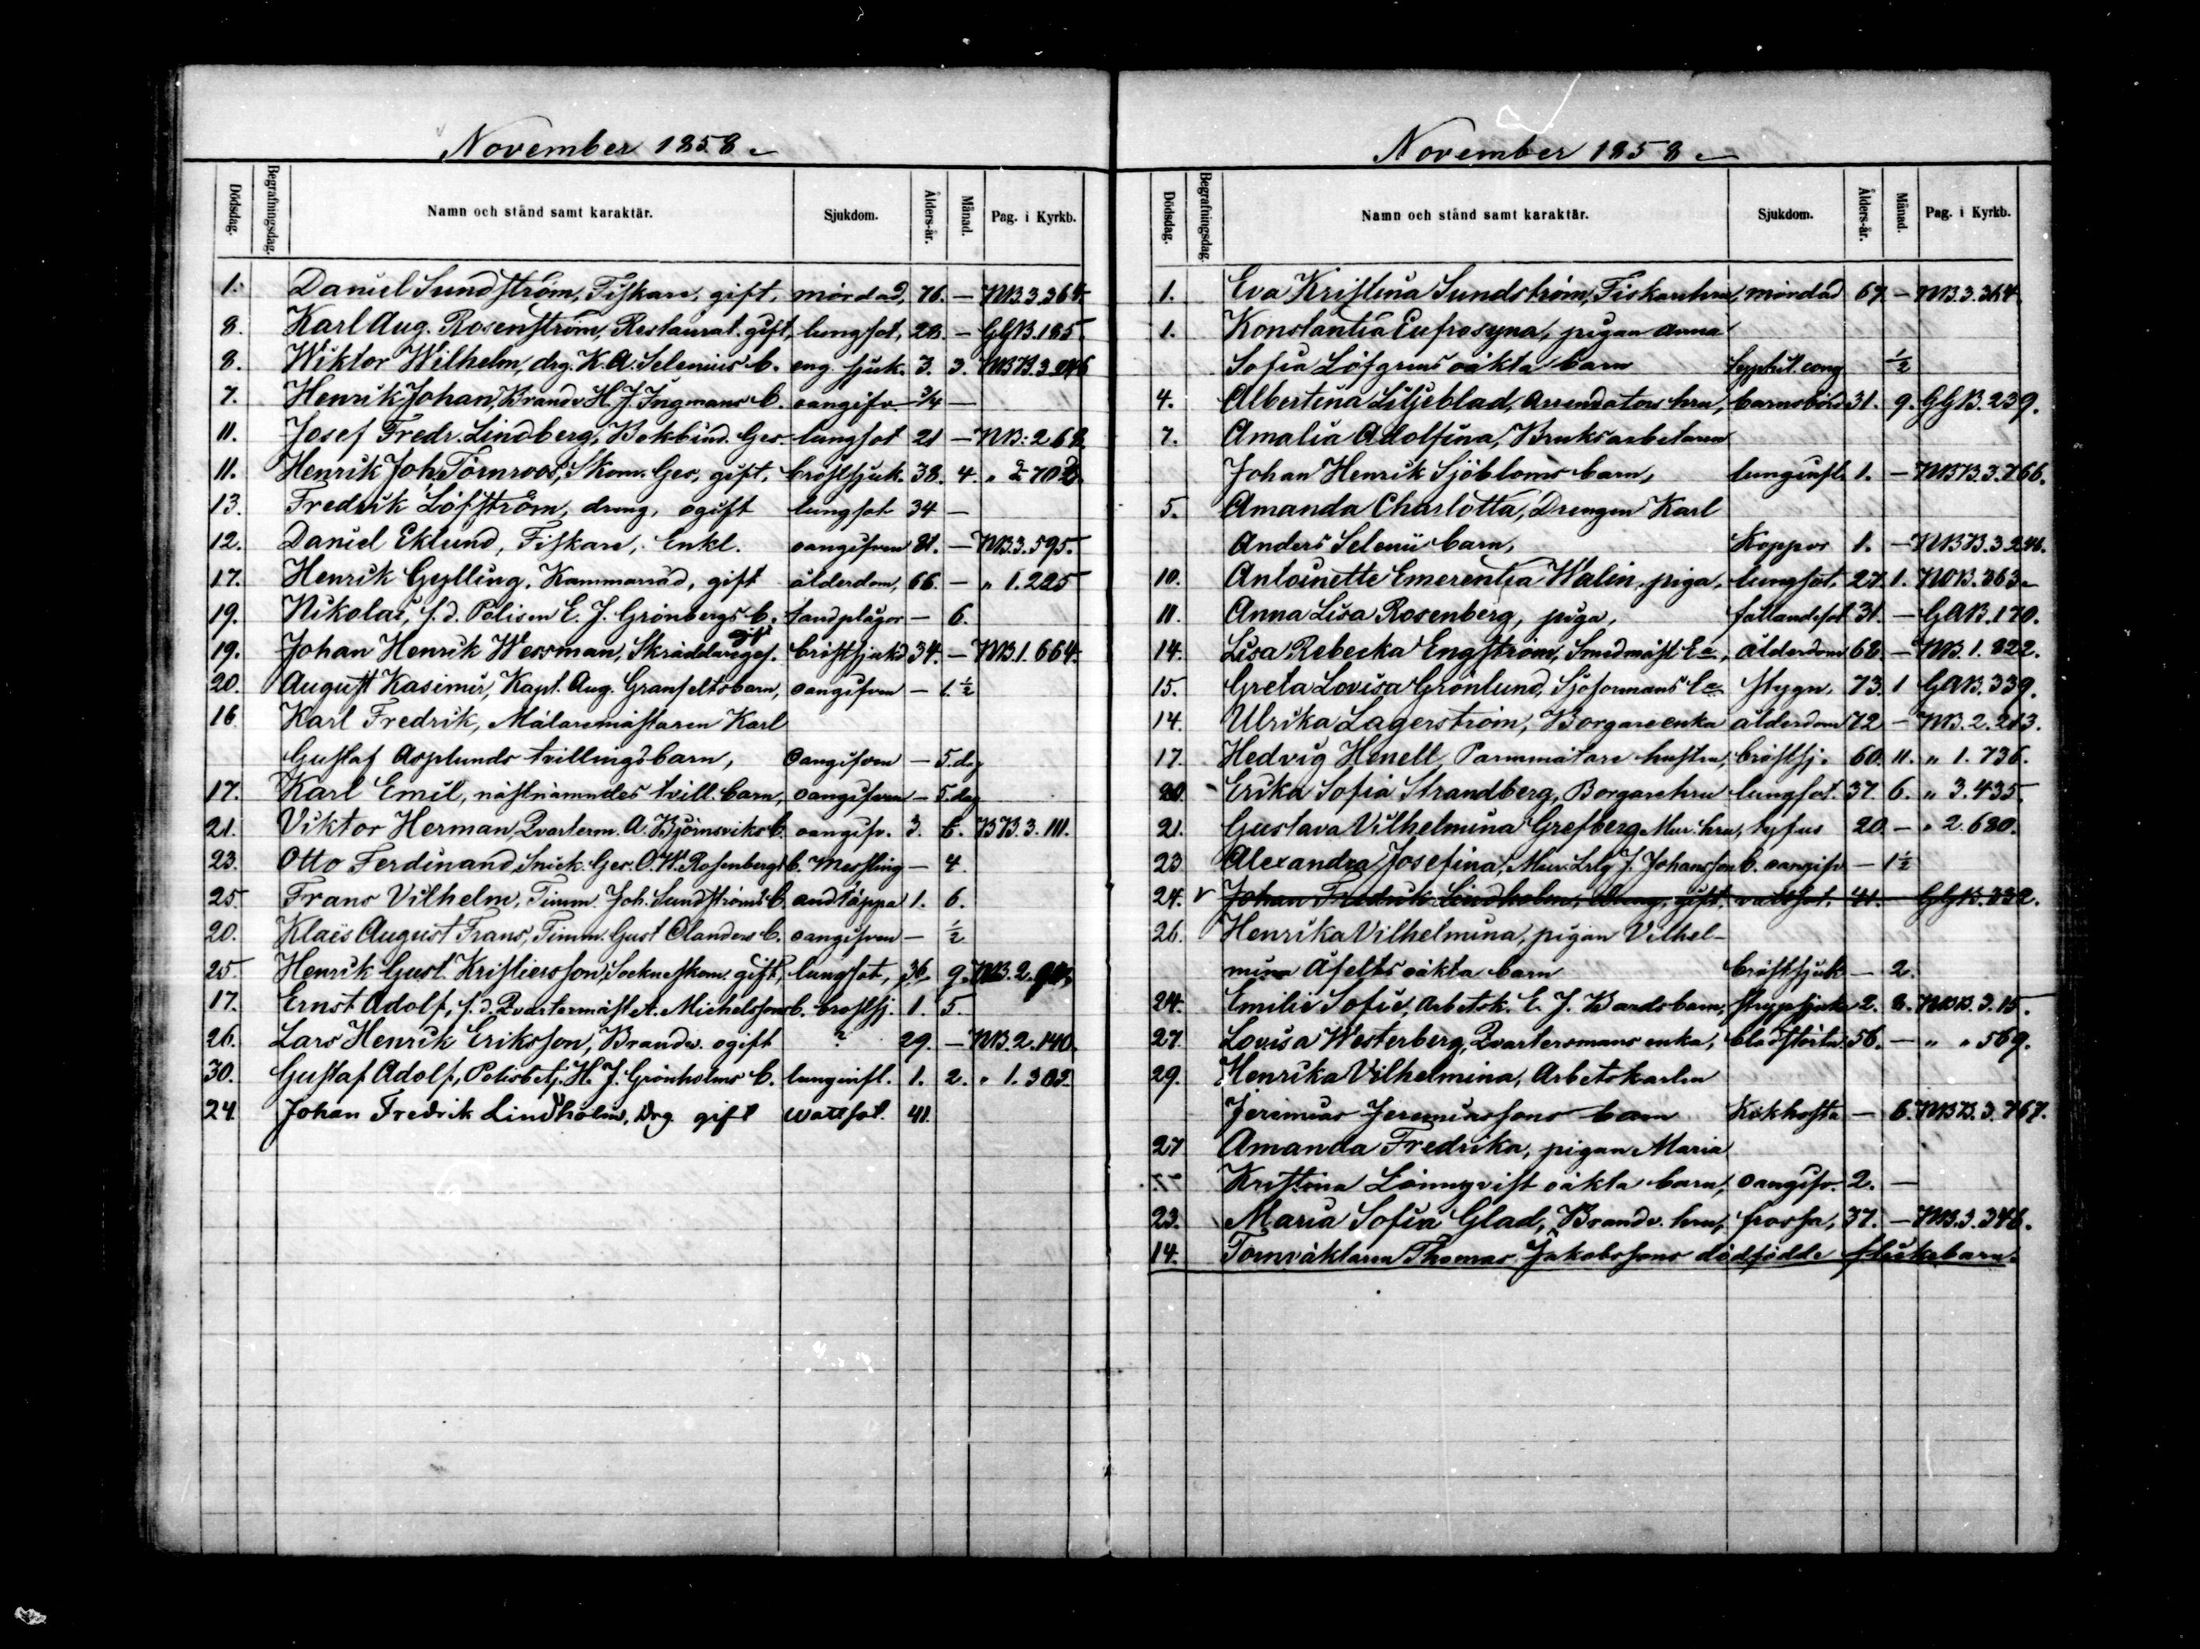 November 1858
Dödsdag. Begrafningsdag. Namn och stånd samt karaktär. Sjukdom. Ålders-år. Månad. Pag. i Kyrkb.
1. Daniel Sundström, Fiskare, gift, mördad, 76. — NB.3.364.
8. Karl Aug. Rosenström, Restaurat. gift, lungsot, 28. — GGB.185
8. Wiktor Wilhelm, drg. K. A. Selenius b. eng. sjuk. 3. 3. NBB.3.246
7. Henrik Johan, Brandv. H. J. Ingmans b. oangifv. 3/4 —
11. Josef Fredr. Lindberg, Bokbind. Ges. lungsot 21 — NB. 268
11. Henrik Joh. Törnroos, Skom. Ges, gift, bröstsjuk. 38. 4. „ 2.702.
13. Fredrik Löfström, dreng, ogift lungsot 34 —
12. Daniel Eklund, Fiskare, Enkl. oangifven 81. — NB.3.595.
17. Henrik Gylling, Kammarråd, gift ålderdom, 66. — „ 1.225
19. Nikolai, f.d. Polisen E. J. Grönbergs b. tandplågor — 6.
19. Johan Henrik Wessman, Skräddareges. gift bröstsjukd 34. — NB.1.664.
20. August Kasimir, Kapt. Aug. Granfeltsbarn, oangifven — 1 1/2
16. Karl Fredrik, Målaremästaren Karl
Gustaf Asplunds tvillingsbarn, oangifven — 5.dg
17. Karl Emil, nästnämndes tvill. barn, oangifven — 5.dag
21. Viktor Herman, Qvarterm. A. Björnsviks b. oangifv. 3. 6. BB.3.111.
23. Otto Ferdinand, Snick. Ges. O. W. Rosenbergs b. Messling — 4.
25. Frans Vilhelm, Timm. Joh. Sundströms b. andtäppa 1. 6.
20. Klaës August Frans, Timm. Gust Olanders b. oangifven — 1/2
25. Henrik Gust. Kristiersson, Sockneskom. gift, lungsot, 36. 9. NB.2.
17. Ernst Adolf, f.d. Qvartermäst A. Michelssons b. bröstsj. 1. 5.
26. Lars Henrik Eriksson, Brandv. ogift ? 29. — NB.2.140.
30. Gustaf Adolf, Polisbetj. H. J. Grönholms b. lunginfl. 1. 2. „ 1.303.
24. Johan Fredrik Lindholm, Drg. gift wattsot. 41.
November 1858
Dödsdag. Begrafningsdag. Namn och stånd samt karaktär. Sjukdom. Ålders-år. Månad. Pag. i Kyrkb.
1. Eva Kristina Sundström, Fiskarehru, mördad 67. — NB.3.364.
1. Konstantia Eufrosyna, pigan Anna
Sofia Löfgrens oäkta barn Syphil. cong 1/2
4. Albertina Liljeblad, Arrendators hru, barnsbörd 31. 9. GGB.239.
7. Amalia Adolfina, Bruksarbetaren
Johan Henrik Sjöbloms barn, lunginfl. 1. — NBB.3.766.
5. Amanda Charlotta, Drengen Karl
Anders Selenii barn, Koppor 1. — NBB.3.246.
10. Antoinette Emerentia Walin, piga, lungsot, 27. 1. NOB.363
11. Anna Lisa Rosenberg, piga, fallandesot 31. — GAB.170.
14. Lisa Rebecka Engström, Smedmäst. Ea, ålderdom 68. — NB.1.822.
15. Greta Lovisa Grönlund, Sjöformans Ea stygn, 73. 1 GAB.339.
14. Ulrika Lagerström, Borgareenka ålderdom 72 — NB.2.213.
17. Hedvig Henell, Parmmätare hustru, bröstsj. 60. 11. „ 1.736.
20. Erika Sofia Strandberg, Borgarehru lungsot. 37. 6. „ 3.435.
21. Gustava Vilhelmina Grefberg, Mur. hru, tyfus 20. — „ 2.680.
23. Alexandra Josefina, Mur. Lrlg J. Johansson b. oangifv — 1 1/2
24. v Johan Fredrik Lindholm, dreng, gift, vattsot. 41. GGB.332.
26. Henrika Vilhelmina, pigan Vilhel-
mina Åfelts oäkta barn bröstsjuk — 2.
24. Emilie Sofie, Arbetsk. E. J. Bards barn, strypsjuka 2. 8. NBB.3.15.
27. Lovisa Westerberg, Qvartersmans enka, blodstörtn. 56. — „ „ 569.
29. Henrika Vilhelmina, Arbetskarlen
Jeremias Jeremiassons barn Kikhosta — 6. NBB.3.767.
27 Amanda Fredrika, pigan Maria
Kristina Lönnqvist oäkta barn, oangifv. 2. —
23. Maria Sofia Glad, Brandv. hru, frossa, 37. — NB.3.346.
14. Tornväktaren Thomas Jakobssons dödfödde flickebarn.